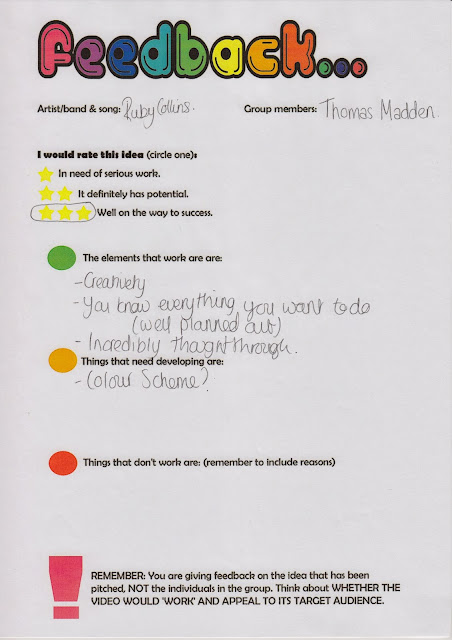 Feedback...
Artist/band & song: Ruby Collins. Group members: Thomas Madden.
I would rate this idea (circle one):
In need of serious work.
It definitely has potential.
Well on the way to success.
The elements that work are are:
- Creativity
- You know everything you want to do
(well planned out)
- Incredibly thought through.
Things that need developing are:
- Colour Scheme?
Things that don't work are: (remember to include reasons)
! REMEMBER: You are giving feedback on the idea that has been
pitched, NOT the individuals in the group. Think about WHETHER THE
VIDEO WOULD 'WORK' AND APPEAL TO ITS TARGET AUDIENCE.